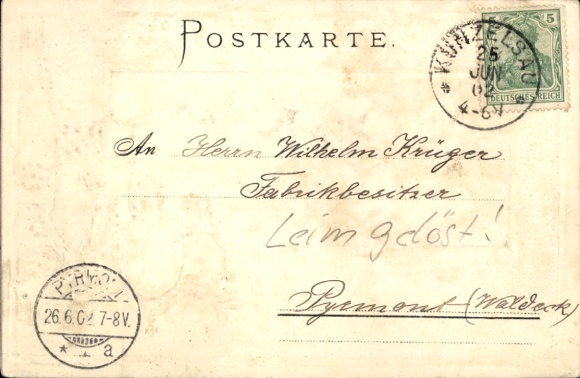 POSTKARTE.
5
DEUTSCHES REICH
KÜNZELSAU
25
JUN
02
4-6N
An Herrn Wilhelm Krüger
Fabrikbesitzer
Leim gelöst!
Pyrmont (Waldeck)
PYRMONT
26.6.02 7-8V.
* 1 a